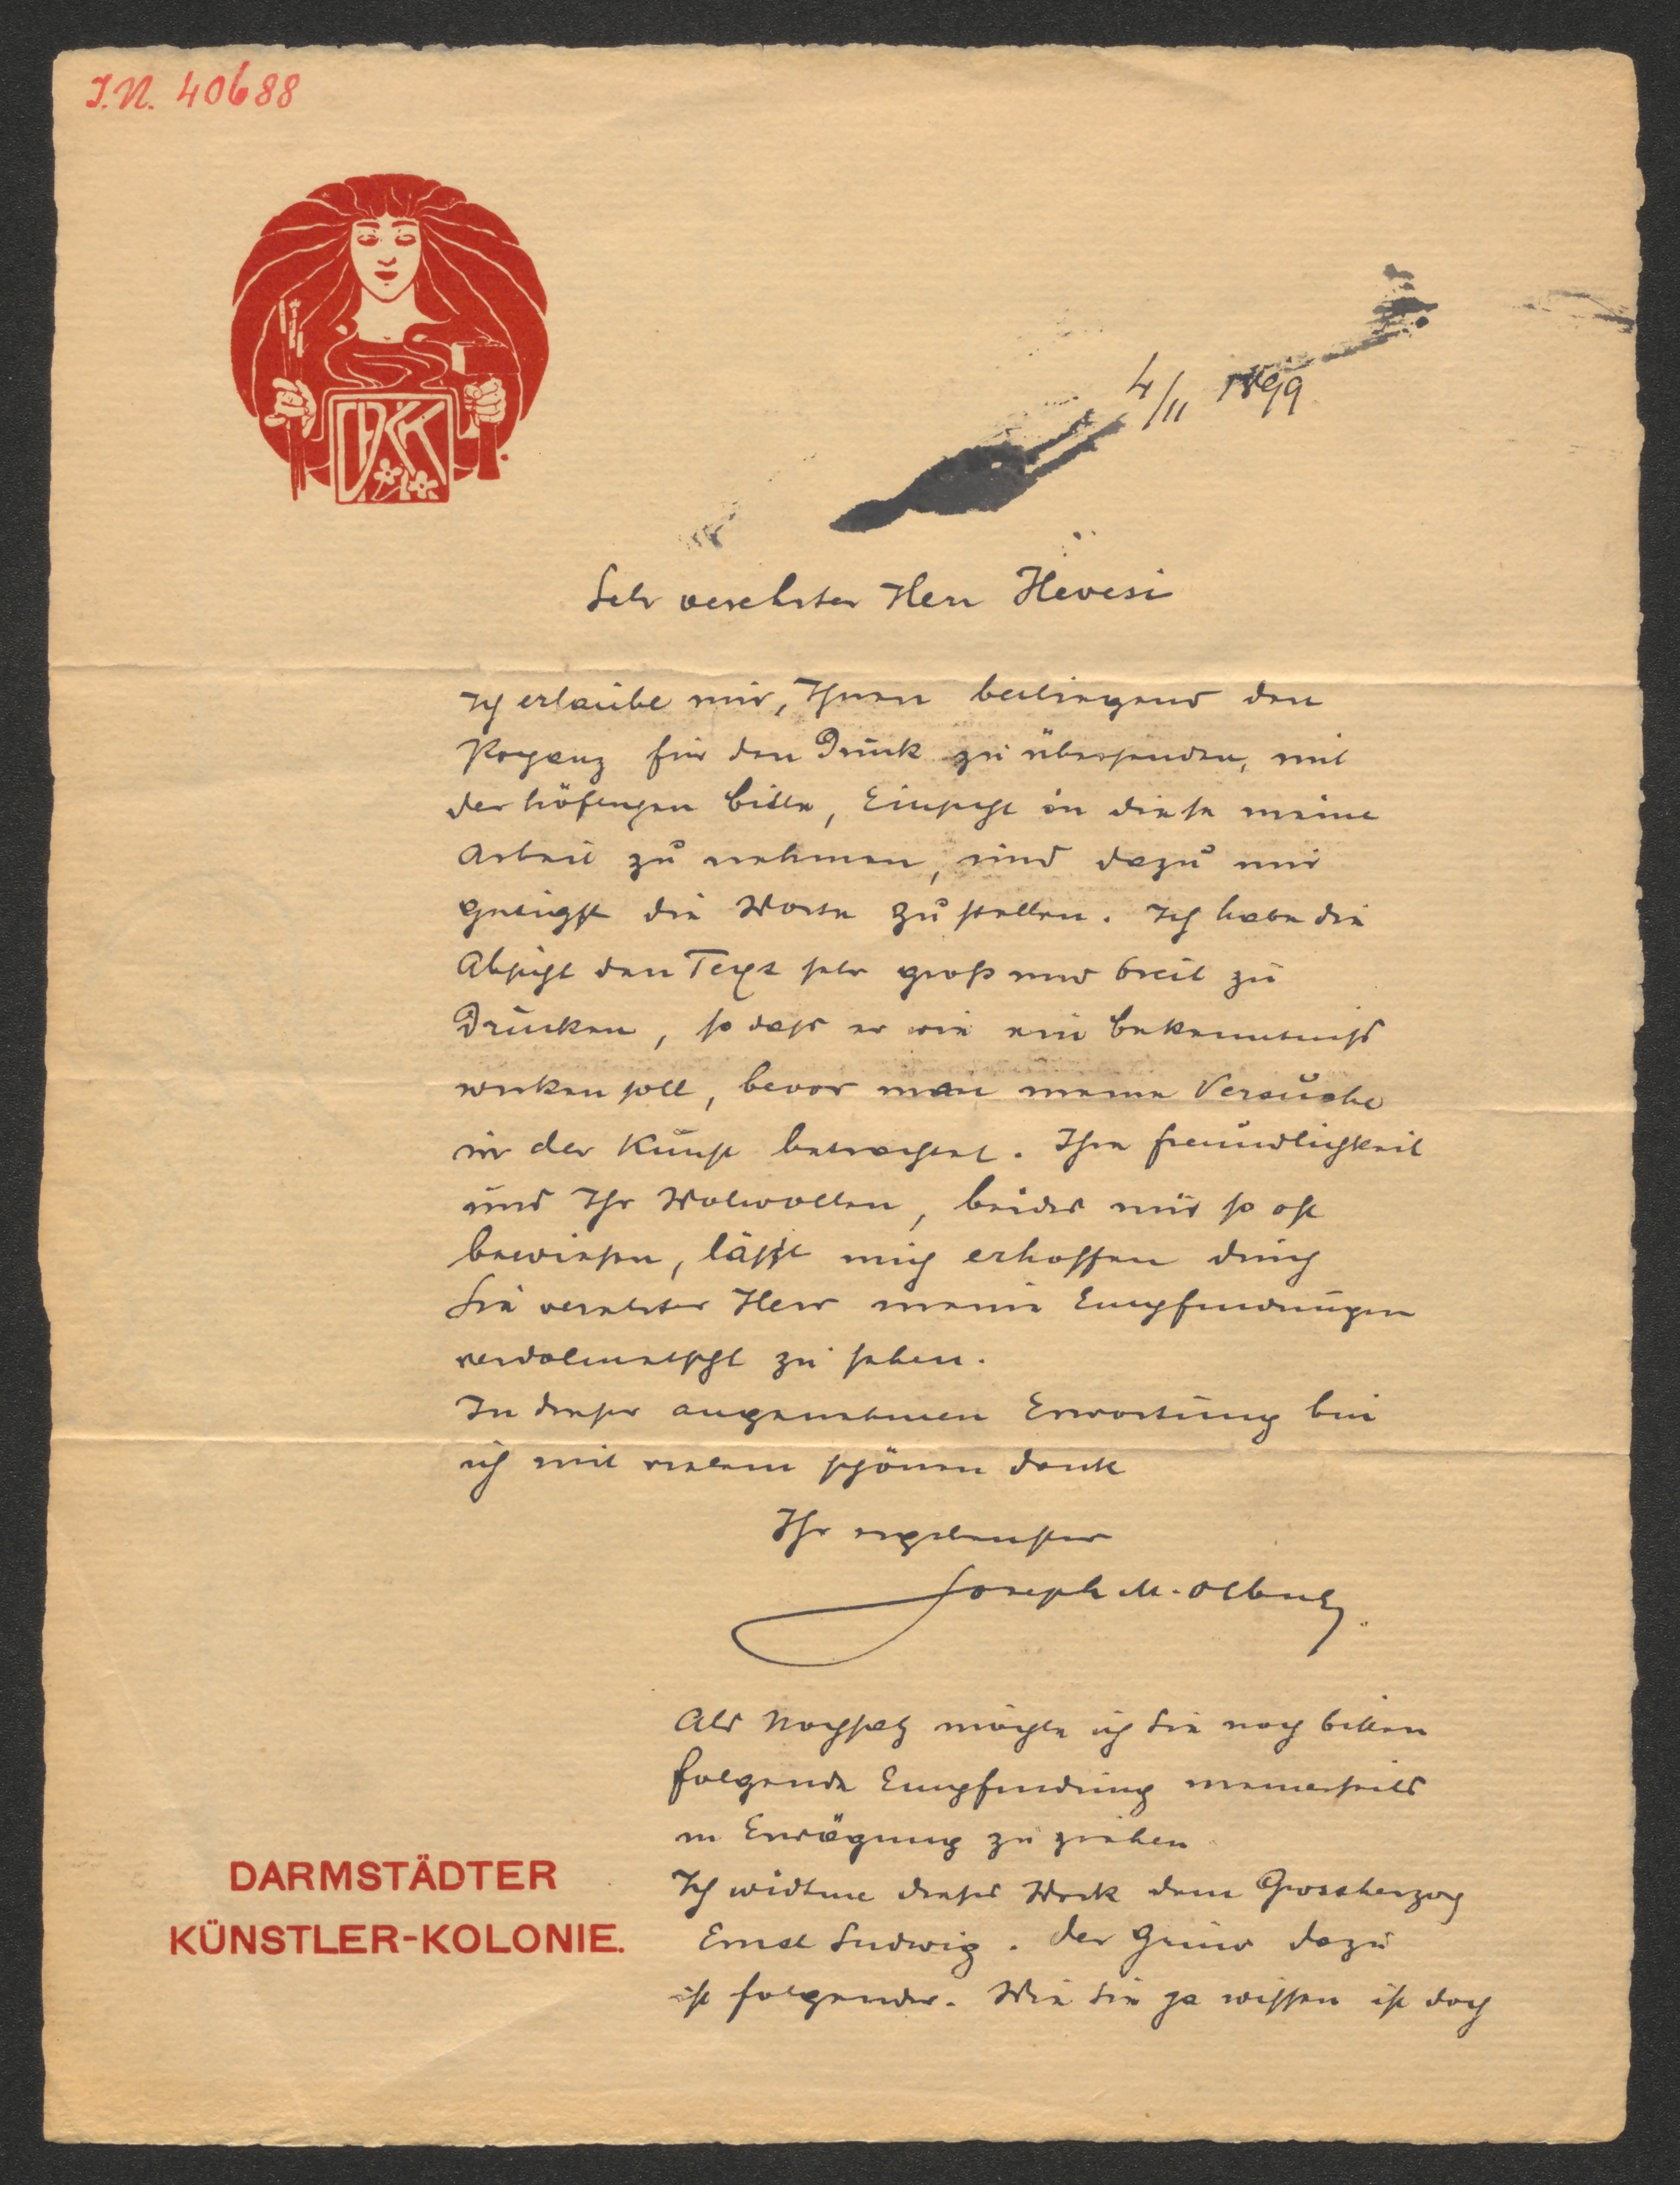 I.N. 40688
DKK
4/11 1899
Sehr verehrter Herr Hevesi
Ich erlaube mir, Ihnen beiliegend den
für den Druck zu übersenden, mit
der höflichen Bitte, Einsicht in diese meine
Arbeit zu nehmen, und dazu mir
gütigst die Worte zu stellen. Ich habe die
Absicht den Text sehr groß und breit zu
Drucken, so dass er wie ein Bekenntniss
wirken soll, bevor man meine Versuche
in der Kunst betrachtet. Ihre Freundlichkeit
und Ihr Wolwollen, beides mir so oft
bewiesen, lässt mich erhoffen durch
Sie verehrter Herr meine Empfindungen
verdolmetscht zu sehen.
In dieser angenehmen Erwartung bin
ich mit vielem schönen Dank
Ihr ergebenster
Joseph M. Olbrich
Als Nachsatz möchte ich Sie noch bitten
folgende Empfindung meinerseits
in Erwägung zu ziehen
Ich widtme dieses Werk dem Grossherzog
Ernst Ludwig. Der Grund dazu
ist folgender. Wie Sie ja wissen ist doch
DARMSTÄDTER
KÜNSTLER-KOLONIE.